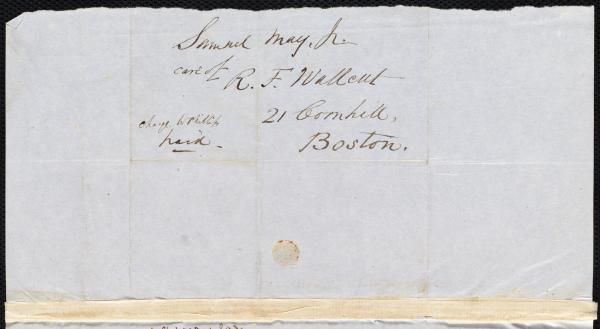 Samuel May, Jr.
care of
R. F. Wallcut
21 Cornhill,
Boston.
charge W Phillips
paid.